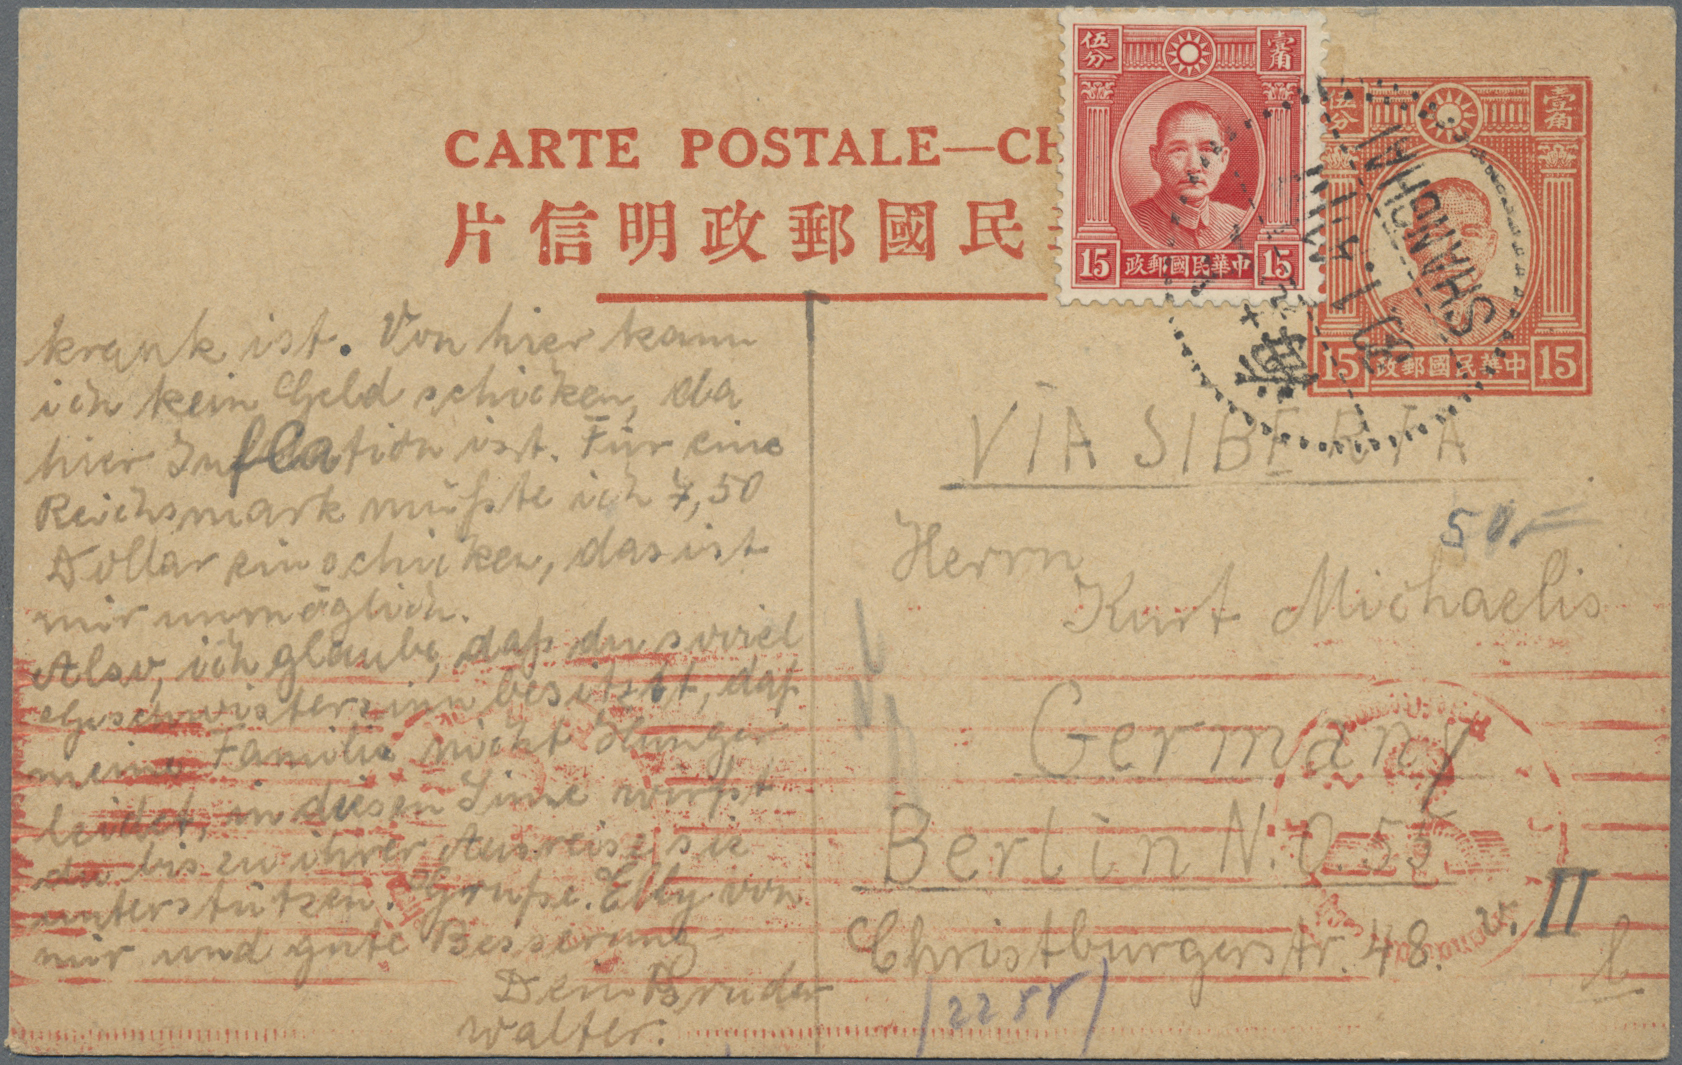 伍分 壹角
15 政郵國民華中 15
伍分 壹角
15 政郵國民華中 15
CARTE POSTALE—CH
片信明政郵國民
SHANGHAI
1.4.41
krank ist. Von hier kann
ich kein Geld schicken, da
hier Inflation ist. Für eine
Reichsmark müßte ich 7,50
Dollar einschicken, das ist
mir unmöglich.
Also, ich glaube, daß du soviel
Geschwistersinn besitzt, daß
meine Familie nicht Hunger
leidet, in diesen Sinne wirst
du bis zu ihrer Ausreise sie
unterstützen. Grüße Elly von
mir und gute Besserung
Dein Bruder
Walter.
VIA SIBERIA
50.-
Herrn
Kurt Michaelis
Germany
Berlin N.O. 55
Christburgerstr. 48. v. II
l
/2288/